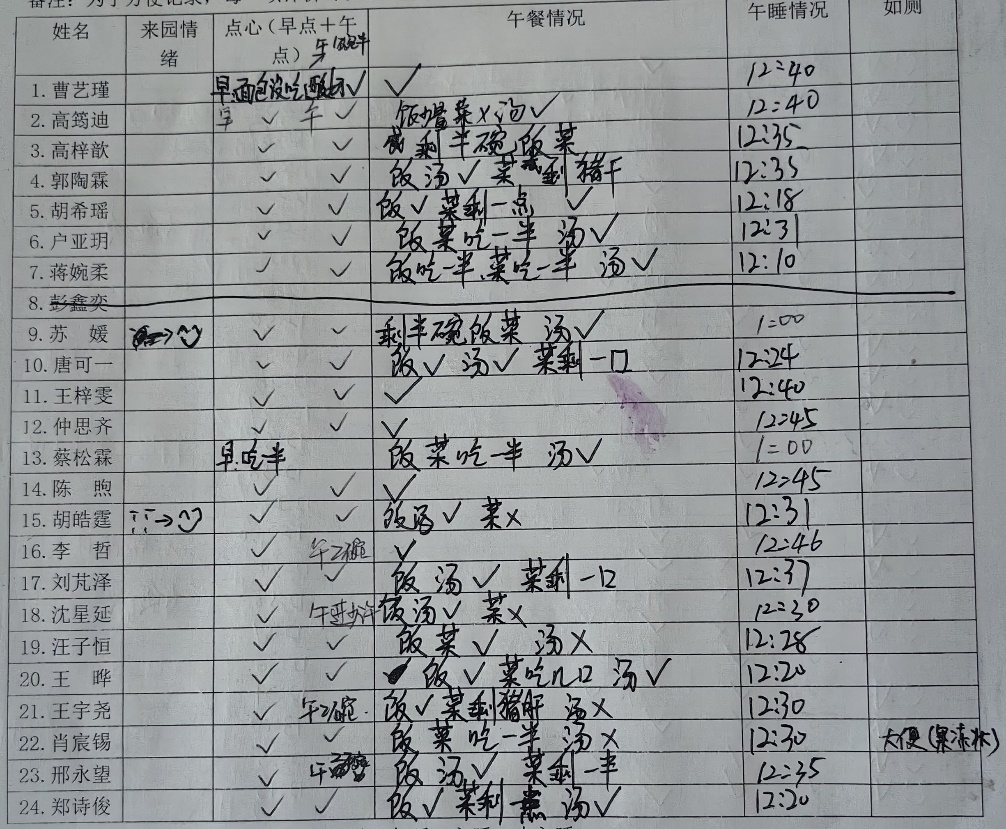 姓名 来园情绪 点心（早点＋午点） 午餐情况 午睡情况 如厕
1. 曹艺瑾 早:面包没吃 ✓ ✓ 12:40
2. 高筠迪 早 ✓ 午 ✓ 饭 菜× 汤✓ 12:40
3. 高梓歆 ✓ ✓ 剩半碗饭菜 12:35
4. 郭陶霖 ✓ ✓ 饭汤✓ 菜剩猪干 12:35
5. 胡希瑶 ✓ ✓ 饭✓ 菜剩一点 ✓ 12:18
6. 户亚玥 ✓ ✓ 饭菜吃一半 汤✓ 12:31
7. 蒋婉柔 ✓ ✓ 饭吃一半、菜吃一半 汤✓ 12:10
8. 彭鑫奕
9. 苏 媛 ✓ ✓ 剩半碗饭菜 汤✓ 1:00
10. 唐可一 ✓ ✓ 饭✓ 汤✓ 菜剩一口 12:24
11. 王梓雯 ✓ ✓ ✓ 12:40
12. 仲思齐 ✓ ✓ ✓ 12:45
13. 蔡松霖 早:吃一半 饭菜吃一半 汤✓ 1:00
14. 陈 煦 ✓ ✓ ✓ 12:45
15. 胡皓霆 ✓ ✓ 饭汤✓ 菜× 12:31
16. 李 哲 ✓ 午2碗 ✓ 12:46
17. 刘芃泽 ✓ ✓ 饭汤✓ 菜剩一口 12:37
18. 沈星延 ✓ 饭汤✓ 菜× 12:30
19. 汪子恒 ✓ ✓ 饭菜✓ 汤× 12:28
20. 王 晔 ✓ ✓ 饭✓ 菜吃几口 汤✓ 12:20
21. 王宇尧 ✓ 午2碗 饭✓ 菜剩猪肝 汤× 12:30
22. 肖宸锡 ✓ ✓ 饭菜吃一半 汤× 12:30 大便(果冻状)
23. 邢永望 ✓ 午 饭汤✓ 菜剩一半 12:35
24. 郑诗俊 ✓ ✓ 饭✓ 菜剩一点 汤✓ 12:20